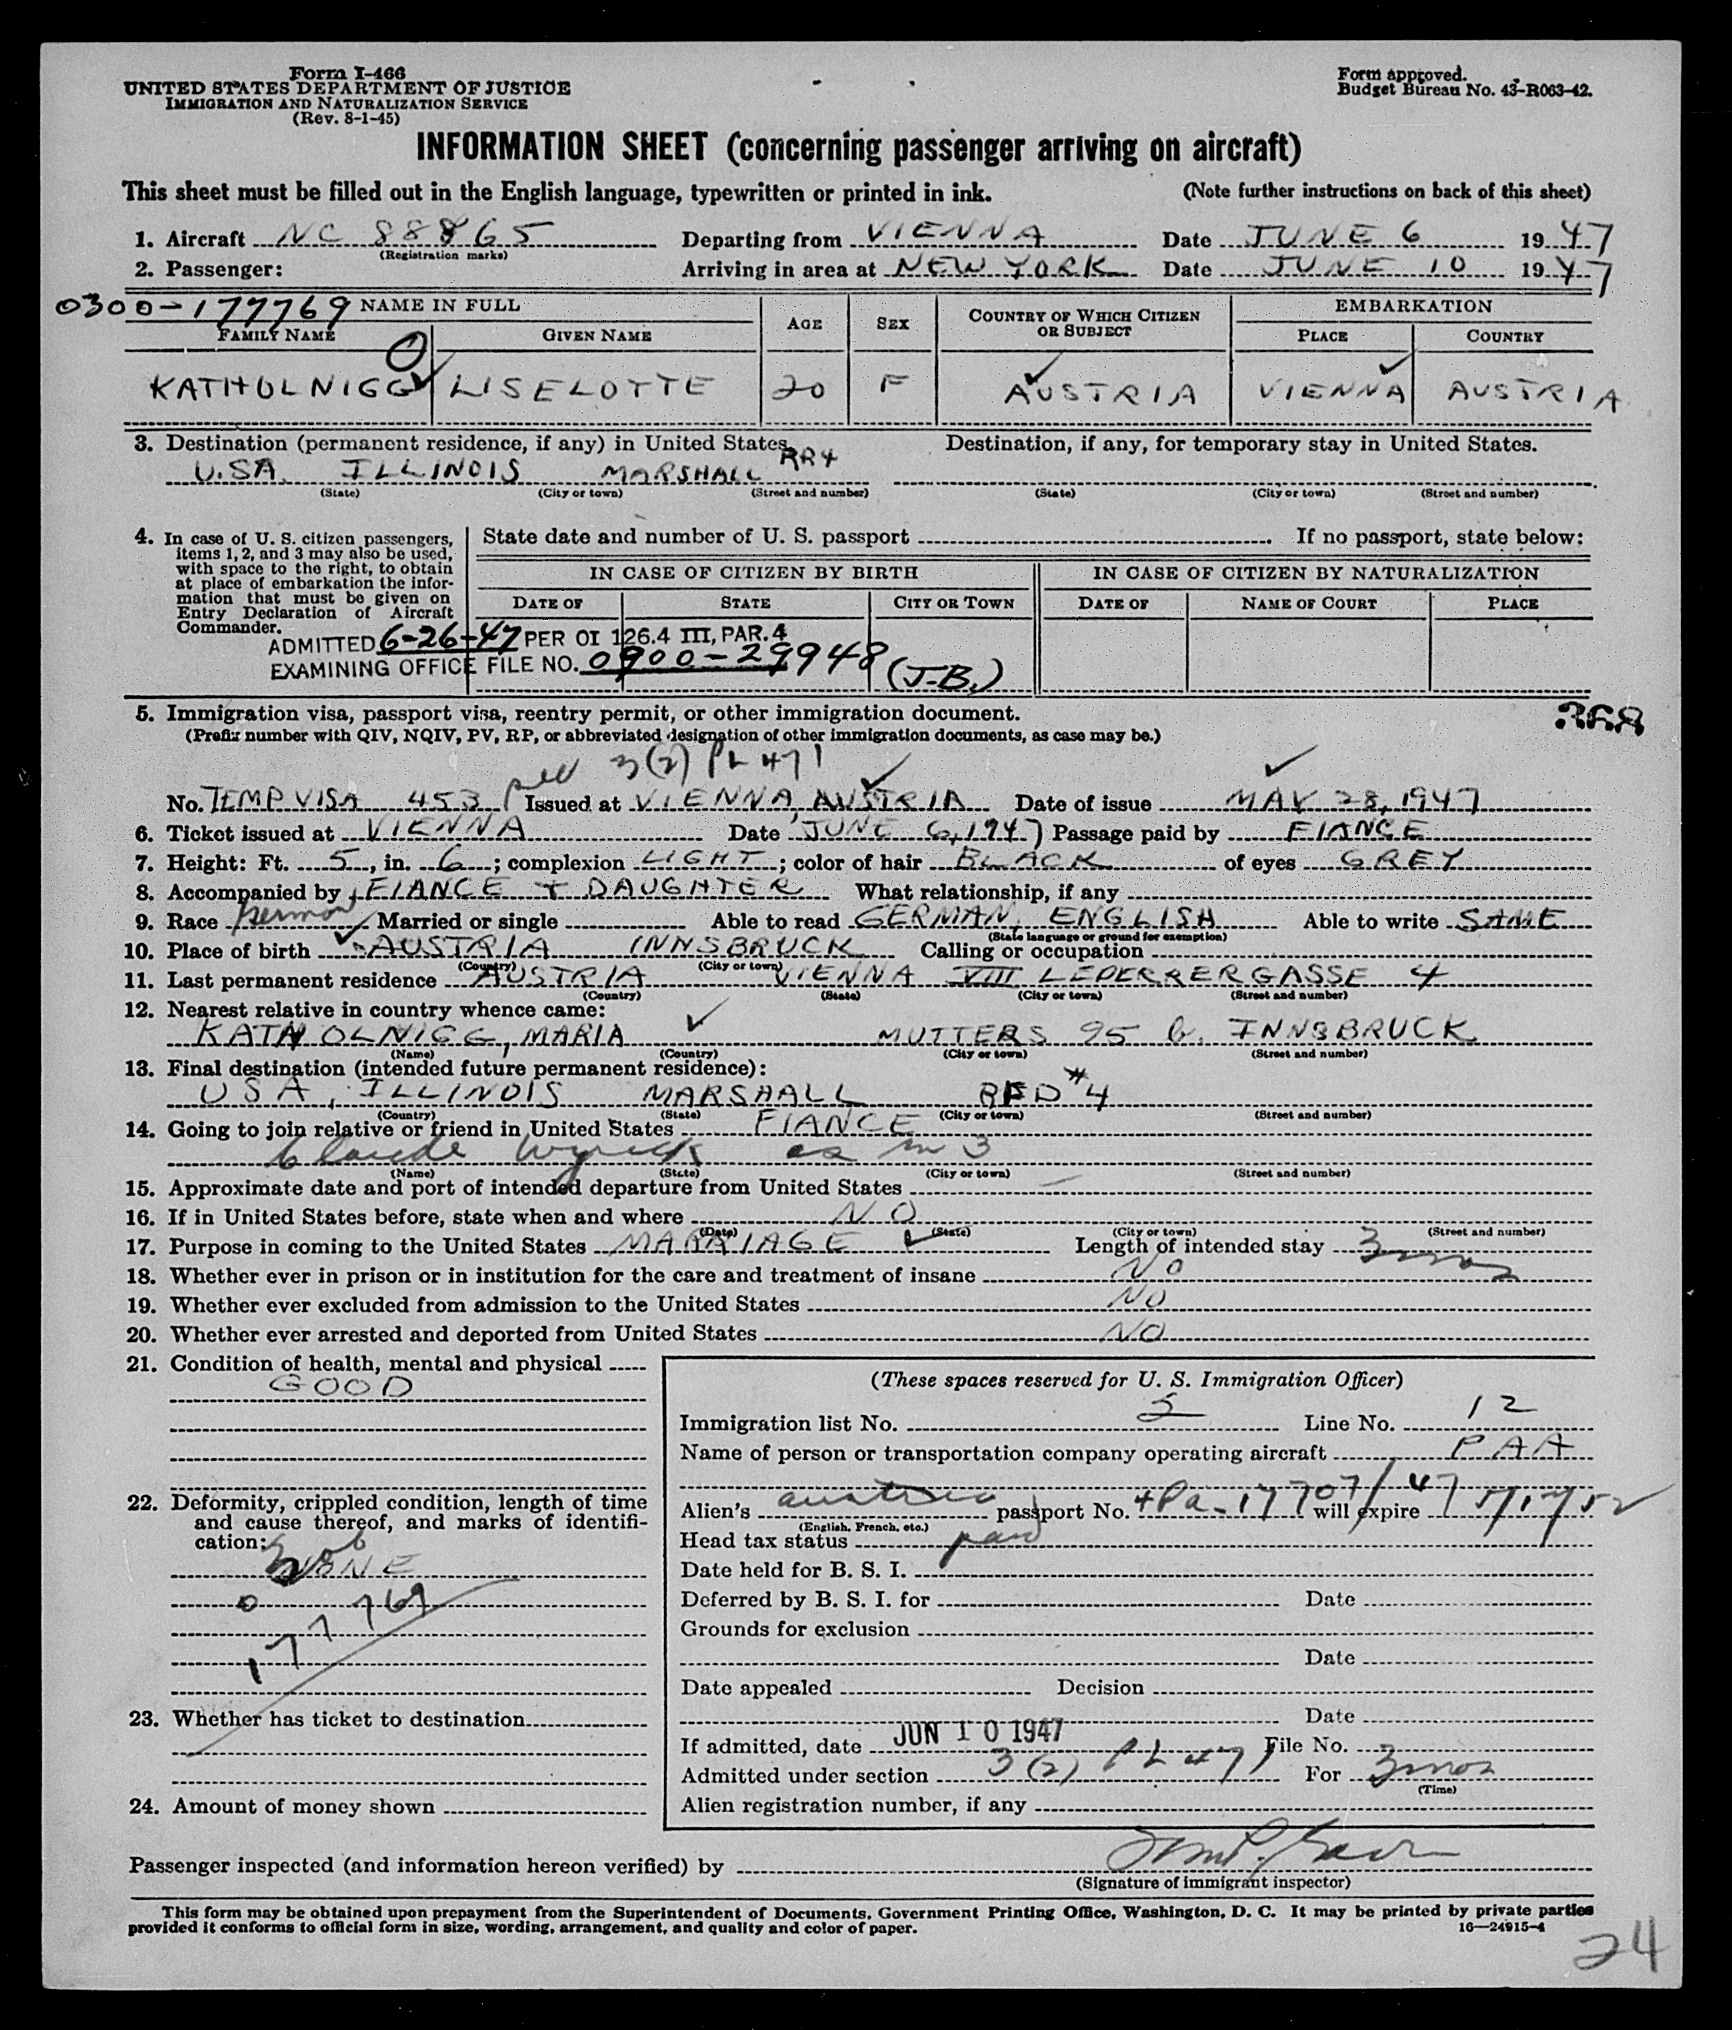 Form I-466
UNITED STATES DEPARTMENT OF JUSTICE
IMMIGRATION AND NATURALIZATION SERVICE
(Rev. 8-1-45)
Form approved.
Budget Bureau No. 43-R063-42.
INFORMATION SHEET (concerning passenger arriving on aircraft)
This sheet must be filled out in the English language, typewritten or printed in ink. (Note further instructions on back of this sheet)
1. Aircraft NC 88865 Departing from VIENNA Date JUNE 6 1947
(Registration marks)
2. Passenger: Arriving in area at NEW YORK Date JUNE 10 1947
0300-177769 NAME IN FULL AGE SEX COUNTRY OF WHICH CITIZEN OR SUBJECT EMBARKATION
FAMILY NAME GIVEN NAME PLACE COUNTRY
KATHOLNIGG LISELOTTE 20 F AUSTRIA VIENNA AUSTRIA
3. Destination (permanent residence, if any) in United States Destination, if any, for temporary stay in United States.
U.SA. ILLINOIS MARSHALL RR4
(State) (City or town) (Street and number) (State) (City or town) (Street and number)
4. In case of U. S. citizen passengers, items 1, 2, and 3 may also be used, with space to the right, to obtain at place of embarkation the information that must be given on Entry Declaration of Aircraft Commander.
State date and number of U. S. passport If no passport, state below:
IN CASE OF CITIZEN BY BIRTH IN CASE OF CITIZEN BY NATURALIZATION
DATE OF STATE CITY OR TOWN DATE OF NAME OF COURT PLACE
ADMITTED 6-26-47 PER OI 126.4 III, PAR. 4
EXAMINING OFFICE FILE NO. 0900-29948 (J.B.)
5. Immigration visa, passport visa, reentry permit, or other immigration document.
(Prefix number with QIV, NQIV, PV, RP, or abbreviated designation of other immigration documents, as case may be.)
3(2) PL 471
No. TEMP VISA 453 Issued at VIENNA, AUSTRIA Date of issue MAY 28, 1947
6. Ticket issued at VIENNA Date JUNE 6, 1947 Passage paid by FIANCE
7. Height: Ft. 5, in. 6; complexion LIGHT; color of hair BLACK of eyes GREY
8. Accompanied by FIANCE + DAUGHTER What relationship, if any
9. Race German Married or single Able to read GERMAN, ENGLISH Able to write SAME
(State language or ground for exemption)
10. Place of birth AUSTRIA INNSBRUCK Calling or occupation
(Country) (City or town)
11. Last permanent residence AUSTRIA VIENNA VIII LEDERERGASSE 4
(Country) (State) (City or town) (Street and number)
12. Nearest relative in country whence came:
KATHOLNIGG, MARIA MUTTERS 95 b. INNSBRUCK
(Name) (Country) (City or town) (Street and number)
13. Final destination (intended future permanent residence):
USA, ILLINOIS MARSHALL RFD #4
(Country) (State) (City or town) (Street and number)
14. Going to join relative or friend in United States FIANCE
Claude Wyrick as in 3
(Name) (State) (City or town) (Street and number)
15. Approximate date and port of intended departure from United States —
16. If in United States before, state when and where NO
(Date) (State) (City or town) (Street and number)
17. Purpose in coming to the United States MARRIAGE Length of intended stay 3 mos
18. Whether ever in prison or in institution for the care and treatment of insane NO
19. Whether ever excluded from admission to the United States NO
20. Whether ever arrested and deported from United States NO
21. Condition of health, mental and physical
GOOD
22. Deformity, crippled condition, length of time and cause thereof, and marks of identification:
NONE
0
177769
23. Whether has ticket to destination
24. Amount of money shown
(These spaces reserved for U. S. Immigration Officer)
Immigration list No. 5 Line No. 12
Name of person or transportation company operating aircraft PAA
Alien's Austria passport No. 4Pa-17707/47 will expire 5/17/52
(English, French, etc.)
Head tax status paid
Date held for B. S. I.
Deferred by B. S. I. for Date
Grounds for exclusion
Date
Date appealed Decision
Date
If admitted, date JUN 10 1947 File No.
Admitted under section 3(2) PL 471 For 3 mos
(Time)
Alien registration number, if any
Passenger inspected (and information hereon verified) by
(Signature of immigrant inspector)
This form may be obtained upon prepayment from the Superintendent of Documents, Government Printing Office, Washington, D. C. It may be printed by private parties
provided it conforms to official form in size, wording, arrangement, and quality and color of paper. 16—24915-4
24